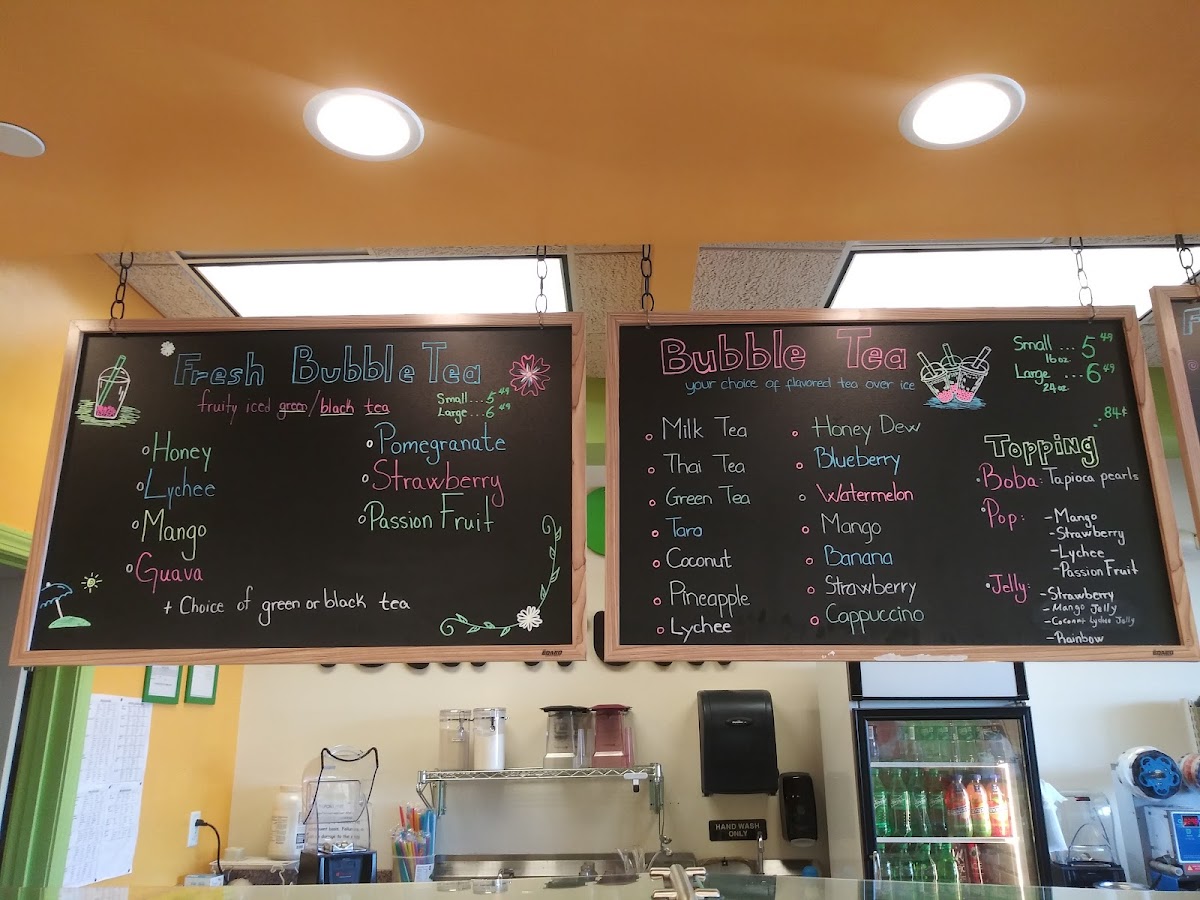 Fresh Bubble Tea
fruity iced green/black tea
Small...5 49
Large...6 49
Honey
Lychee
Mango
Guava
Pomegranate
Strawberry
Passion Fruit
+ Choice of green or black tea
Bubble Tea
your choice of flavored tea over ice
Small ... 5 49
16 oz
Large ...6 49
24 oz
Milk Tea
Thai Tea
Green Tea
Taro
Coconut
Pineapple
Lychee
Honey Dew
Blueberry
Watermelon
Mango
Banana
Strawberry
Cappuccino
84¢
Topping
Boba: Tapioca pearls
Pop: -Mango
-Strawberry
-Lychee
-Passion Fruit
Jelly: -Strawberry
-Mango Jelly
-Coconut Lychee Jelly
-Rainbow
HAND WASH
ONLY